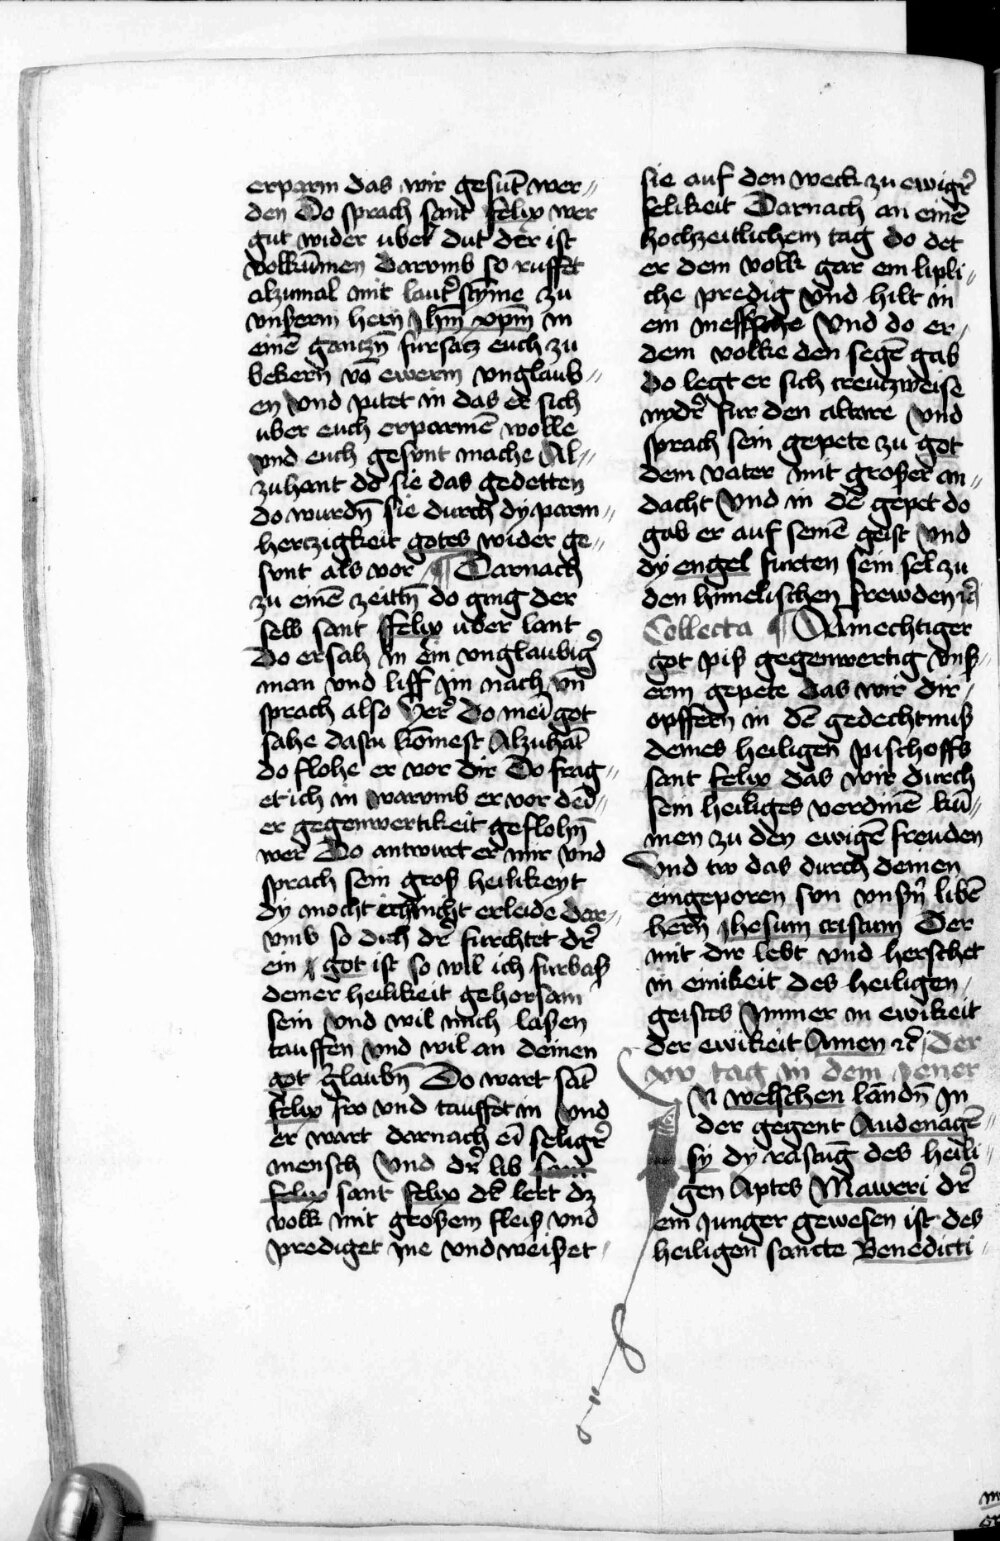 erparm das wir gesūt wer〃
den Do sprach sant felix wer
gut wider ubel dut der ist
volkūmen darvmb so ruffet
alzumal mit laut᷑ stym̄e zu
vnßerm hern Jhm̄ xpm̄ in
einē gantzn̄ fursatz euch zu
bekern vō ewerm vnglaub〃
en vnd pitet in das er sich
uber euch erparmē wolle
vnd euch gesunt mache Al〃
zuhant do sie das gedetten
do wurdn̄ sie durch dy parm〃
hertzigkeit gotes wider ge〃
sunt als vor ¶ Darnach
zu einē zeittn̄ do ging der
selb sant ffelix uber lant
Do ersah in ein vnglaubig᷑
man vnd liff im nach vn̄
sprach also her᷑ do mei̅ got
sahe dastu kōmest Alzuhāt
do flohe er vor dir Do frag〃
et ich in warvmb er vor dei̅〃
er gegenwertikeit geflohn̄
wer Do antwurt er mir vnd
sprach sein groß heilikeyt
dy mocht ich nicht erleidē dar〃
vmb so dich dr᷑ furchtet dr᷑
ein got ist so wil ich furbaß
deiner heilikeit gehorsam
sein vnd wil mich laßen
tauffen vnd wil an deinen
got glaubn̄ Do wart sāt
felix fro vnd tauffet in vnd
er wart darnach ei̅ selig᷑
mensch vnd dr᷑ lib sant
felix sant felix der lert dz
volk mit großem fleiß vnd
prediget ine vnd weißet
sie auf den weck zu ewig᷑
selikeit Darnach an einē
hochzeitlichem tag do det
er dem volk gar ein lipli〃
che predig vnd hilt in
ein messe Vnd do er〃
dem volke den segē gab
do legt er sich creutzweise
nydr᷑ fur den altare vnd
sprach sein gepete zu got
dem vater mit großer an〃
dacht Vnd in dē gepet do
gab er auf seinē geist vnd
dy engel furten sein sel zu
den himelischen frewden ꝛc̄
Collecta ¶ Almechtiger
got piß gegenwertig vnß〃
erm gepete das wir dir
opffern in dē gedechtniß
deines heiligen pischoffs
sant felix das wir durch
sein heiliges verdinē kū〃
men zu den ewigē freuden
Vnd tw das durch deinen
eingeporen sun vnsn̄ libē
hern̄ Jhesum cristum Der
mit dir lebt vnd herschet
in einikeit des heiligen
geistes ymmer in ewikeit
der ewikeit Amen ꝛc̄ der
xv tag in dem Jener
N welschen landn̄ In
der gegent Audenagē〃
sy dy rastūg des heili〃
gen Aptes Maweri dr᷑
ein junger gewesen ist des
heiligen sancte Benedicti